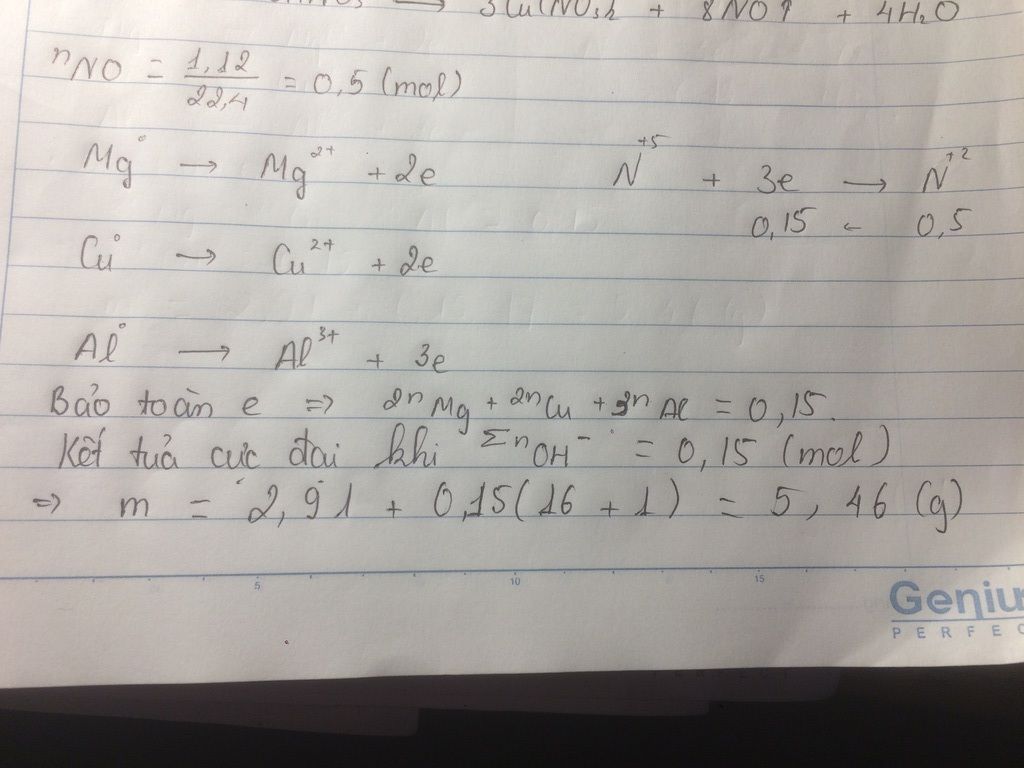 → 3Cu(NO3)2 + 8NO↑ + 4H2O
nNO = 1,12/22,4 = 0,5 (mol)
Mg° → Mg²⁺ + 2e N⁺⁵ + 3e → N⁺²
0,15 ← 0,5
Cu° → Cu²⁺ + 2e
Al° → Al³⁺ + 3e
Bảo toàn e ⇒ 2nMg + 2nCu + 3nAl = 0,15.
Kết tủa cực đại khi ΣnOH⁻ = 0,15 (mol)
⇒ m = 2,91 + 0,15(16 + 1) = 5,46 (g)
5 10 15
Geniu
PERFEC